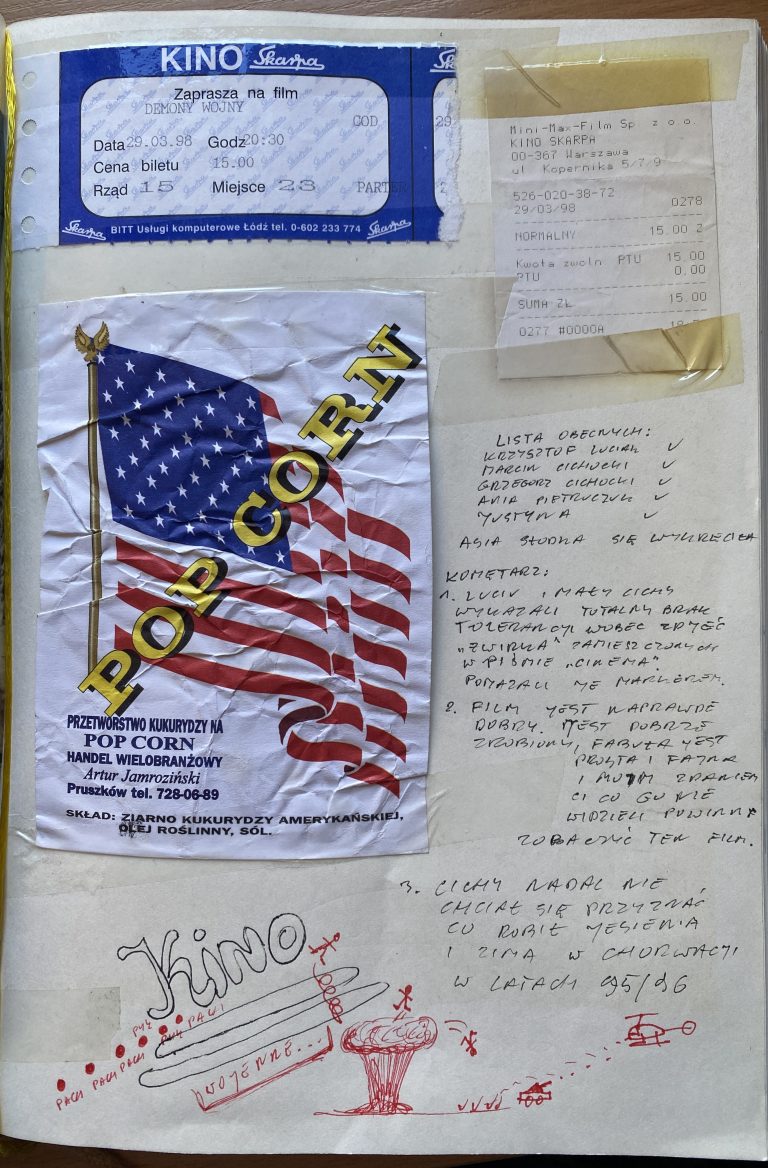 KINO Skarpa
Zaprasza na film
DEMONY WOJNY
GOD
Data 29.03.98 Godz 20:30
Cena biletu 15.00
Rząd 15 Miejsce 23 PARTER
Skarpa BITT Usługi komputerowe Łódź tel. 0-602 233 774 Skarpa
29
2
Mini-Max-Film Sp z o.o.
KINO SKARPA
00-367 Warszawa
ul Kopernika 5/7/9
526-020-38-72
29/03/98 0278
NORMALNY 15.00 Z
Kwota zwoln PTU 15.00
PTU 0.00
SUMA ZŁ 15.00
0277 #0000A
POP CORN
PRZETWORSTWO KUKURYDZY NA
POP CORN
HANDEL WIELOBRANŻOWY
Artur Jamroziński
Pruszków tel. 728-06-89
SKŁAD: ZIARNO KUKURYDZY AMERYKAŃSKIEJ,
OLEJ ROŚLINNY, SÓL.
LISTA OBECNYCH:
KRZYSZTOF LUCIAK ✓
MARCIN CICHOCKI ✓
GRZEGORZ CICHOCKI ✓
ANIA PIETRUCZUK ✓
JUSTYNA ✓
ASIA SŁODKA SIĘ WYKRECIŁA
KOMETARZ:
1. LUCIU I MAŁY CICHY
WYKAZALI TOTALNY BRAK
TOLERANCJI WOBEC ZDJĘĆ
„ŻWIRKA" ZAMIESZCZONYCH
W PIŚMIE „CINEMA".
POMAZALI JE MARKEREM.
2. FILM JEST NAPRAWDĘ
DOBRY. JEST DOBRZE
ZROBIONY, FABUŁA JEST
PROSTA I FAJNA
I MOIM ZDANIEM
CI CO GO NIE
WIDZIELI POWINNI
ZOBACZYĆ TEN FILM.
3. CICHY NADAL NIE
CHCIAŁ SIĘ PRZYZNAĆ
CO ROBIŁ JESIENIĄ
I ZIMĄ W CHORWACJI
W LATACH 95/96
KINO
WOJENNE...
PACH PACH PACH PACH